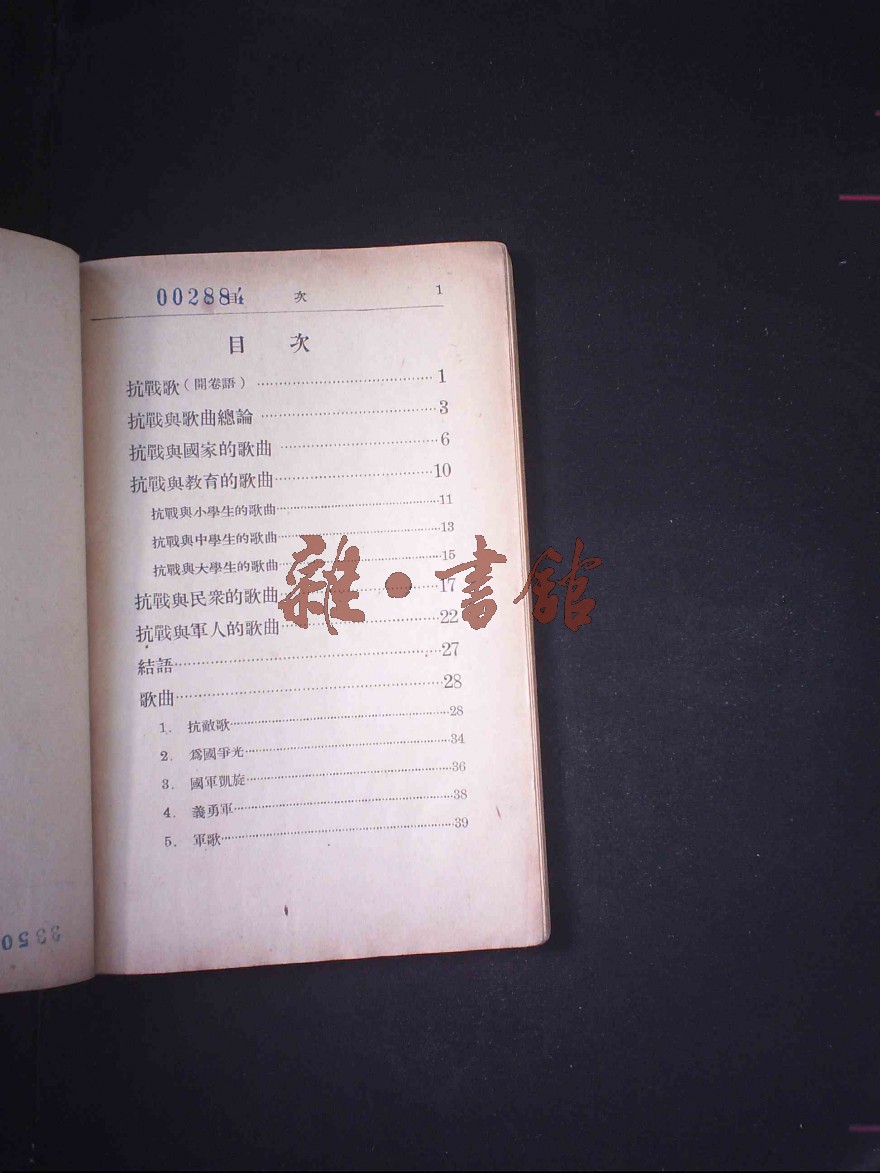 002884
目 次 1
目 次
抗戰歌(開卷語)…………1
抗戰與歌曲總論…………3
抗戰與國家的歌曲…………6
抗戰與教育的歌曲…………10
抗戰與小學生的歌曲…………11
抗戰與中學生的歌曲…………13
抗戰與大學生的歌曲…………15
抗戰與民衆的歌曲…………17
抗戰與軍人的歌曲…………22
結語…………27
歌曲…………28
1. 抗敵歌…………28
2. 爲國爭光…………34
3. 國軍凱旋…………36
4. 義勇軍…………38
5. 軍歌…………39
雜·書館